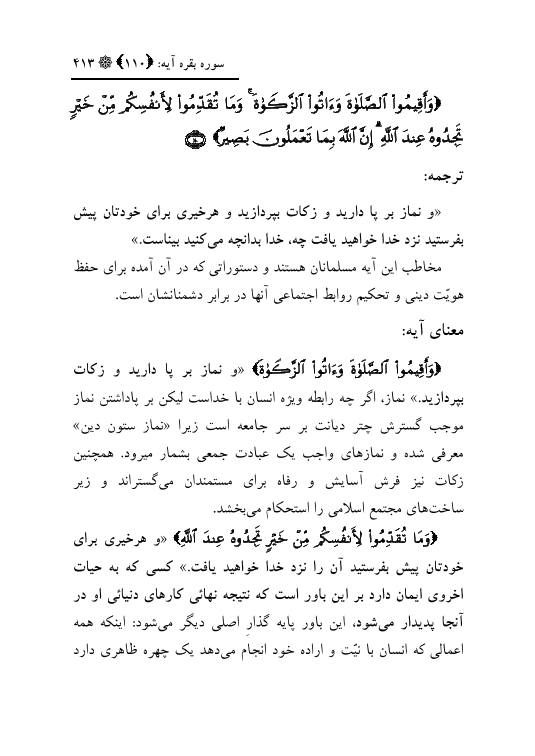 سوره بقره آیه: ﴿۱۱۰﴾ ۴۱۳
﴿وَأَقِيمُواْ ٱلصَّلَوٰةَ وَءَاتُواْ ٱلزَّكَوٰةَۚ وَمَا تُقَدِّمُواْ لِأَنفُسِكُم مِّنۡ خَيۡرٖ
تَجِدُوهُ عِندَ ٱللَّهِۗ إِنَّ ٱللَّهَ بِمَا تَعۡمَلُونَ بَصِيرٞ﴾
ترجمه:
«و نماز بر پا دارید و زکات بپردازید و هرخیری برای خودتان پیش
بفرستید نزد خدا خواهید یافت چه، خدا بدانچه می‌کنید بیناست.»
مخاطب این آیه مسلمانان هستند و دستوراتی که در آن آمده برای حفظ
هویّت دینی و تحکیم روابط اجتماعی آنها در برابر دشمنانشان است.
معنای آیه:
﴿وَأَقِيمُواْ ٱلصَّلَوٰةَ وَءَاتُواْ ٱلزَّكَوٰةَ﴾ «و نماز بر پا دارید و زکات
بپردازید.» نماز، اگر چه رابطه ویژه انسان با خداست لیکن بر پاداشتن نماز
موجب گسترش چتر دیانت بر سر جامعه است زیرا «نماز ستون دین»
معرفی شده و نمازهای واجب یک عبادت جمعی بشمار میرود. همچنین
زکات نیز فرش آسایش و رفاه برای مستمندان می‌گستراند و زیر
ساخت‌های مجتمع اسلامی را استحکام می‌بخشد.
﴿وَمَا تُقَدِّمُواْ لِأَنفُسِكُم مِّنۡ خَيۡرٖ تَجِدُوهُ عِندَ ٱللَّهِ﴾ «و هرخیری برای
خودتان پیش بفرستید آن را نزد خدا خواهید یافت.» کسی که به حیات
اخروی ایمان دارد بر این باور است که نتیجه نهائی کارهای دنیائی او در
آنجا پدیدار می‌شود، این باور پایه گذارِ اصلی دیگر می‌شود: اینکه همه
اعمالی که انسان با نیّت و اراده خود انجام می‌دهد یک چهره ظاهری دارد